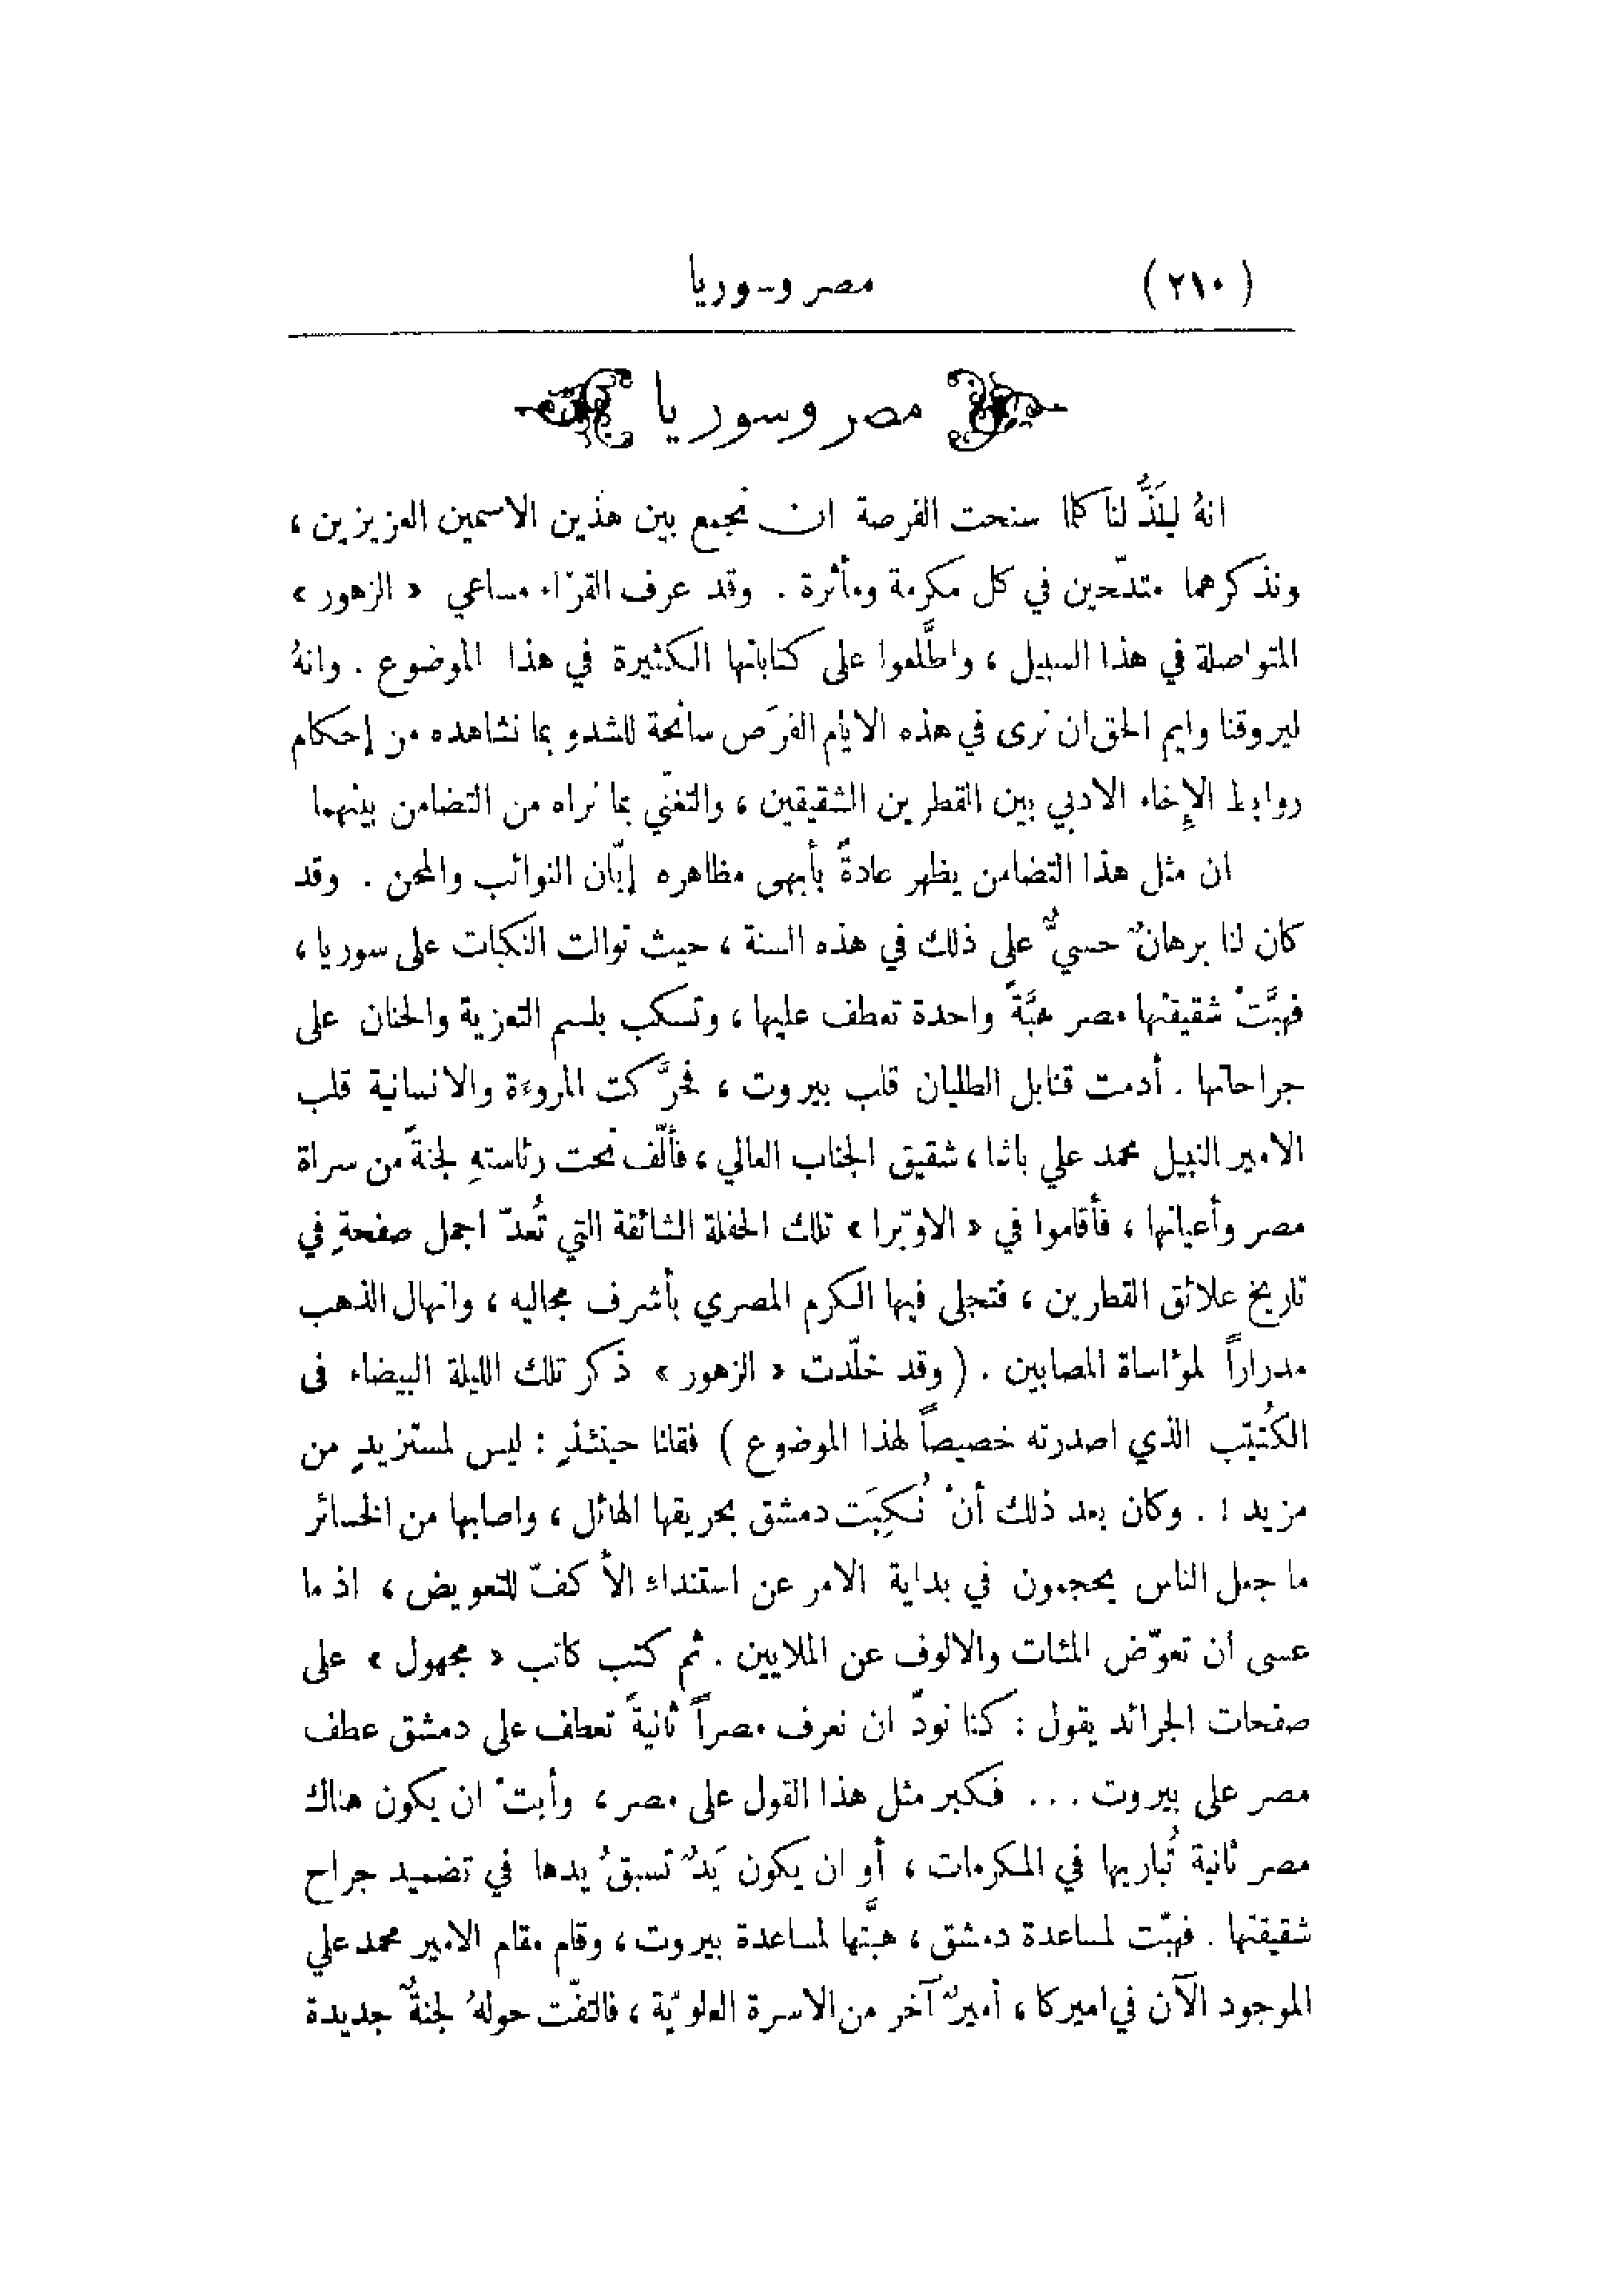 (٢١٠) مصر وسوريا
مصر وسوريا
انهُ ليلَذُّ لنا كلما سنحت الفرصة ان نجمع بين هذين الاسمين العزيزين ،
ونذكرهما متدّحين في كل مكرمة ومأثرة . وقد عرف القرّاء مساعي « الزهور »
المتواصلة في هذا السبيل ، واطَّلعوا على كتاباتها الكثيرة في هذا الموضوع . وانهُ
ليروقنا وايم الحق ان نرى في هذه الايام الفرَص سانحة للشدو بما نشاهده من إحكام
روابط الإخاء الادبي بين القطرين الشقيقين ، والتغنّي بما نراه من التضامن بينهما
ان مثل هذا التضامن يظهر عادةً بأبهى مظاهره إبّان النوائب والمحن . وقد
كان لنا برهانٌ حسيٌّ على ذلك في هذه السنة ، حيث توالت النكبات على سوريا ،
فهبَّتْ شقيقتها مصر هبَّةً واحدة تعطف عليها ، وتسكب بلسم التعزية والحنان على
جراحاتها . أدمت قنابل الطليان قلب بيروت ، فحرَّكت المروءة والانسانية قلب
الامير النبيل محمد علي باشا ، شقيق الجناب العالي ، فألّف تحت رئاستهِ لجنةً من سراة
مصر وأعيانها ، فأقاموا في « الاوبّرا » تلك الحفلة الشائقة التي تُعدّ اجمل صفحةٍ في
تاريخ علائق القطرين ، فتجلى فيها الكرم المصري بأشرف مجاليه ، وانهال الذهب
مدراراً لمؤاساة المصابين . ( وقد خلّدت « الزهور » ذكر تلك الليلة البيضاء فى
الكُتيّب الذي اصدرته خصيصاً لهذا الموضوع ) فقلنا حينئذٍ : ليس لمستزيدٍ من
مزيد ! . وكان بعد ذلك أنْ نُكِبَت دمشق بحريقها الهائل ، واصابها من الخسائر
ما جعل الناس يحجمون في بداية الامر عن استنداء الأكفّ للتعويض ، اذ ما
عسى ان تعوّض المئات والالوف عن الملايين . ثم كتب كاتب « مجهول » على
صفحات الجرائد يقول : كنا نودّ ان نعرف مصراً ثانيةً تعطف على دمشق عطف
مصر على بيروت ... فكبر مثل هذا القول على مصر ، وأبتْ ان يكون هناك
مصر ثانية تُباريها في المكرمات ، أو ان يكون يَدٌ تسبقُ يدها في تضميد جراح
شقيقتها . فهبّت لمساعدة دمشق ، هبَّتها لمساعدة بيروت ، وقام مقام الامير محمد علي
الموجود الآن في اميركا ، أميرٌ آخر من الاسرة العلويّة ، فالتفّت حولهُ لجنةٌ جديدة